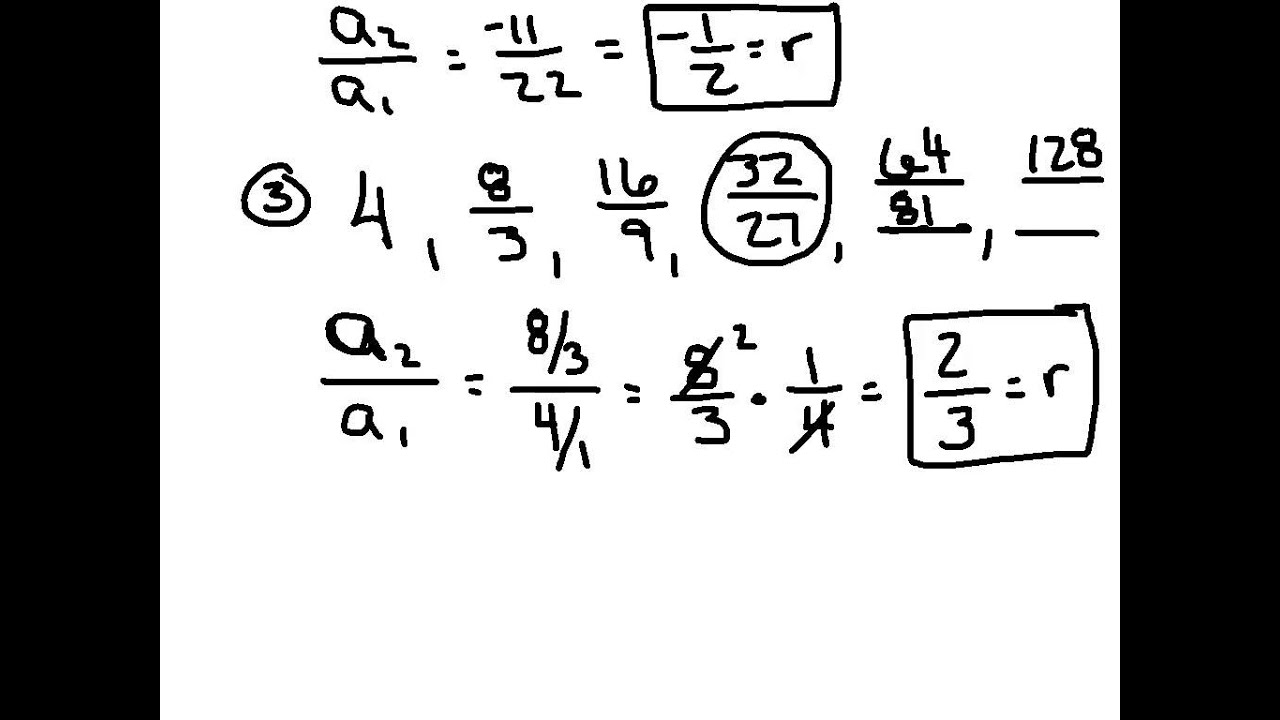 a₂/a₁ = -11/22 = -1/2 = r
③ 4, 8/3, 16/9, 32/27, 64/81, 128/
a₂/a₁ = 8/3 / 4/1 = 8/3 2 · 1/4 = 2/3 = r